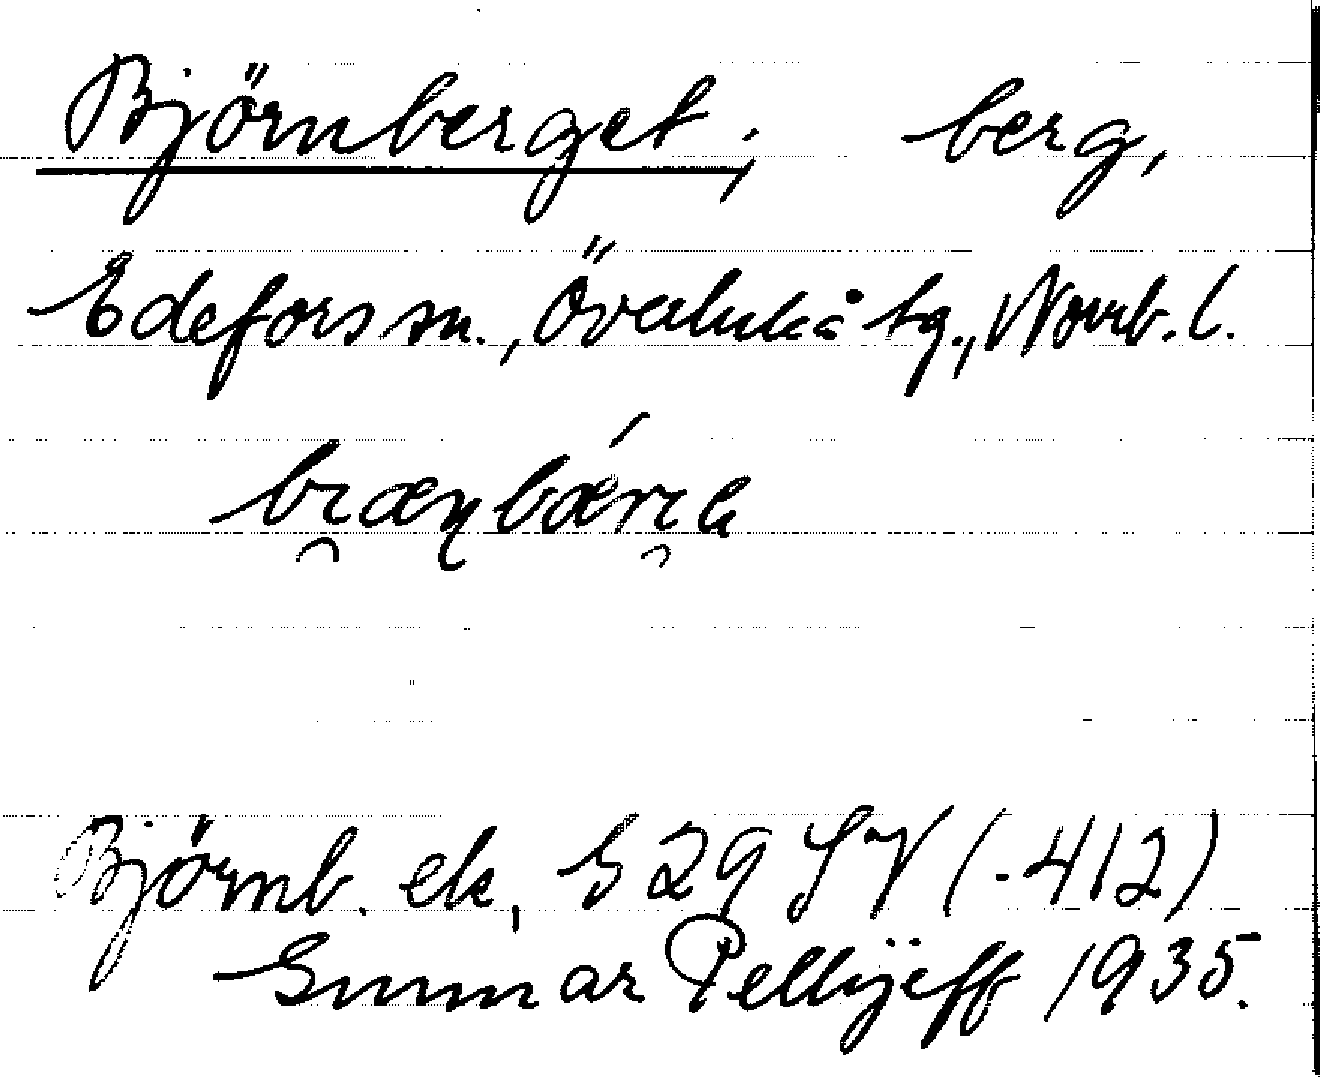 Björnberget; berg,
Edefors sn., Överluleå tg., Norrb. l.
Björnb. ek, S 29 SV (.412)
Gunnar Pellijeff 1935.